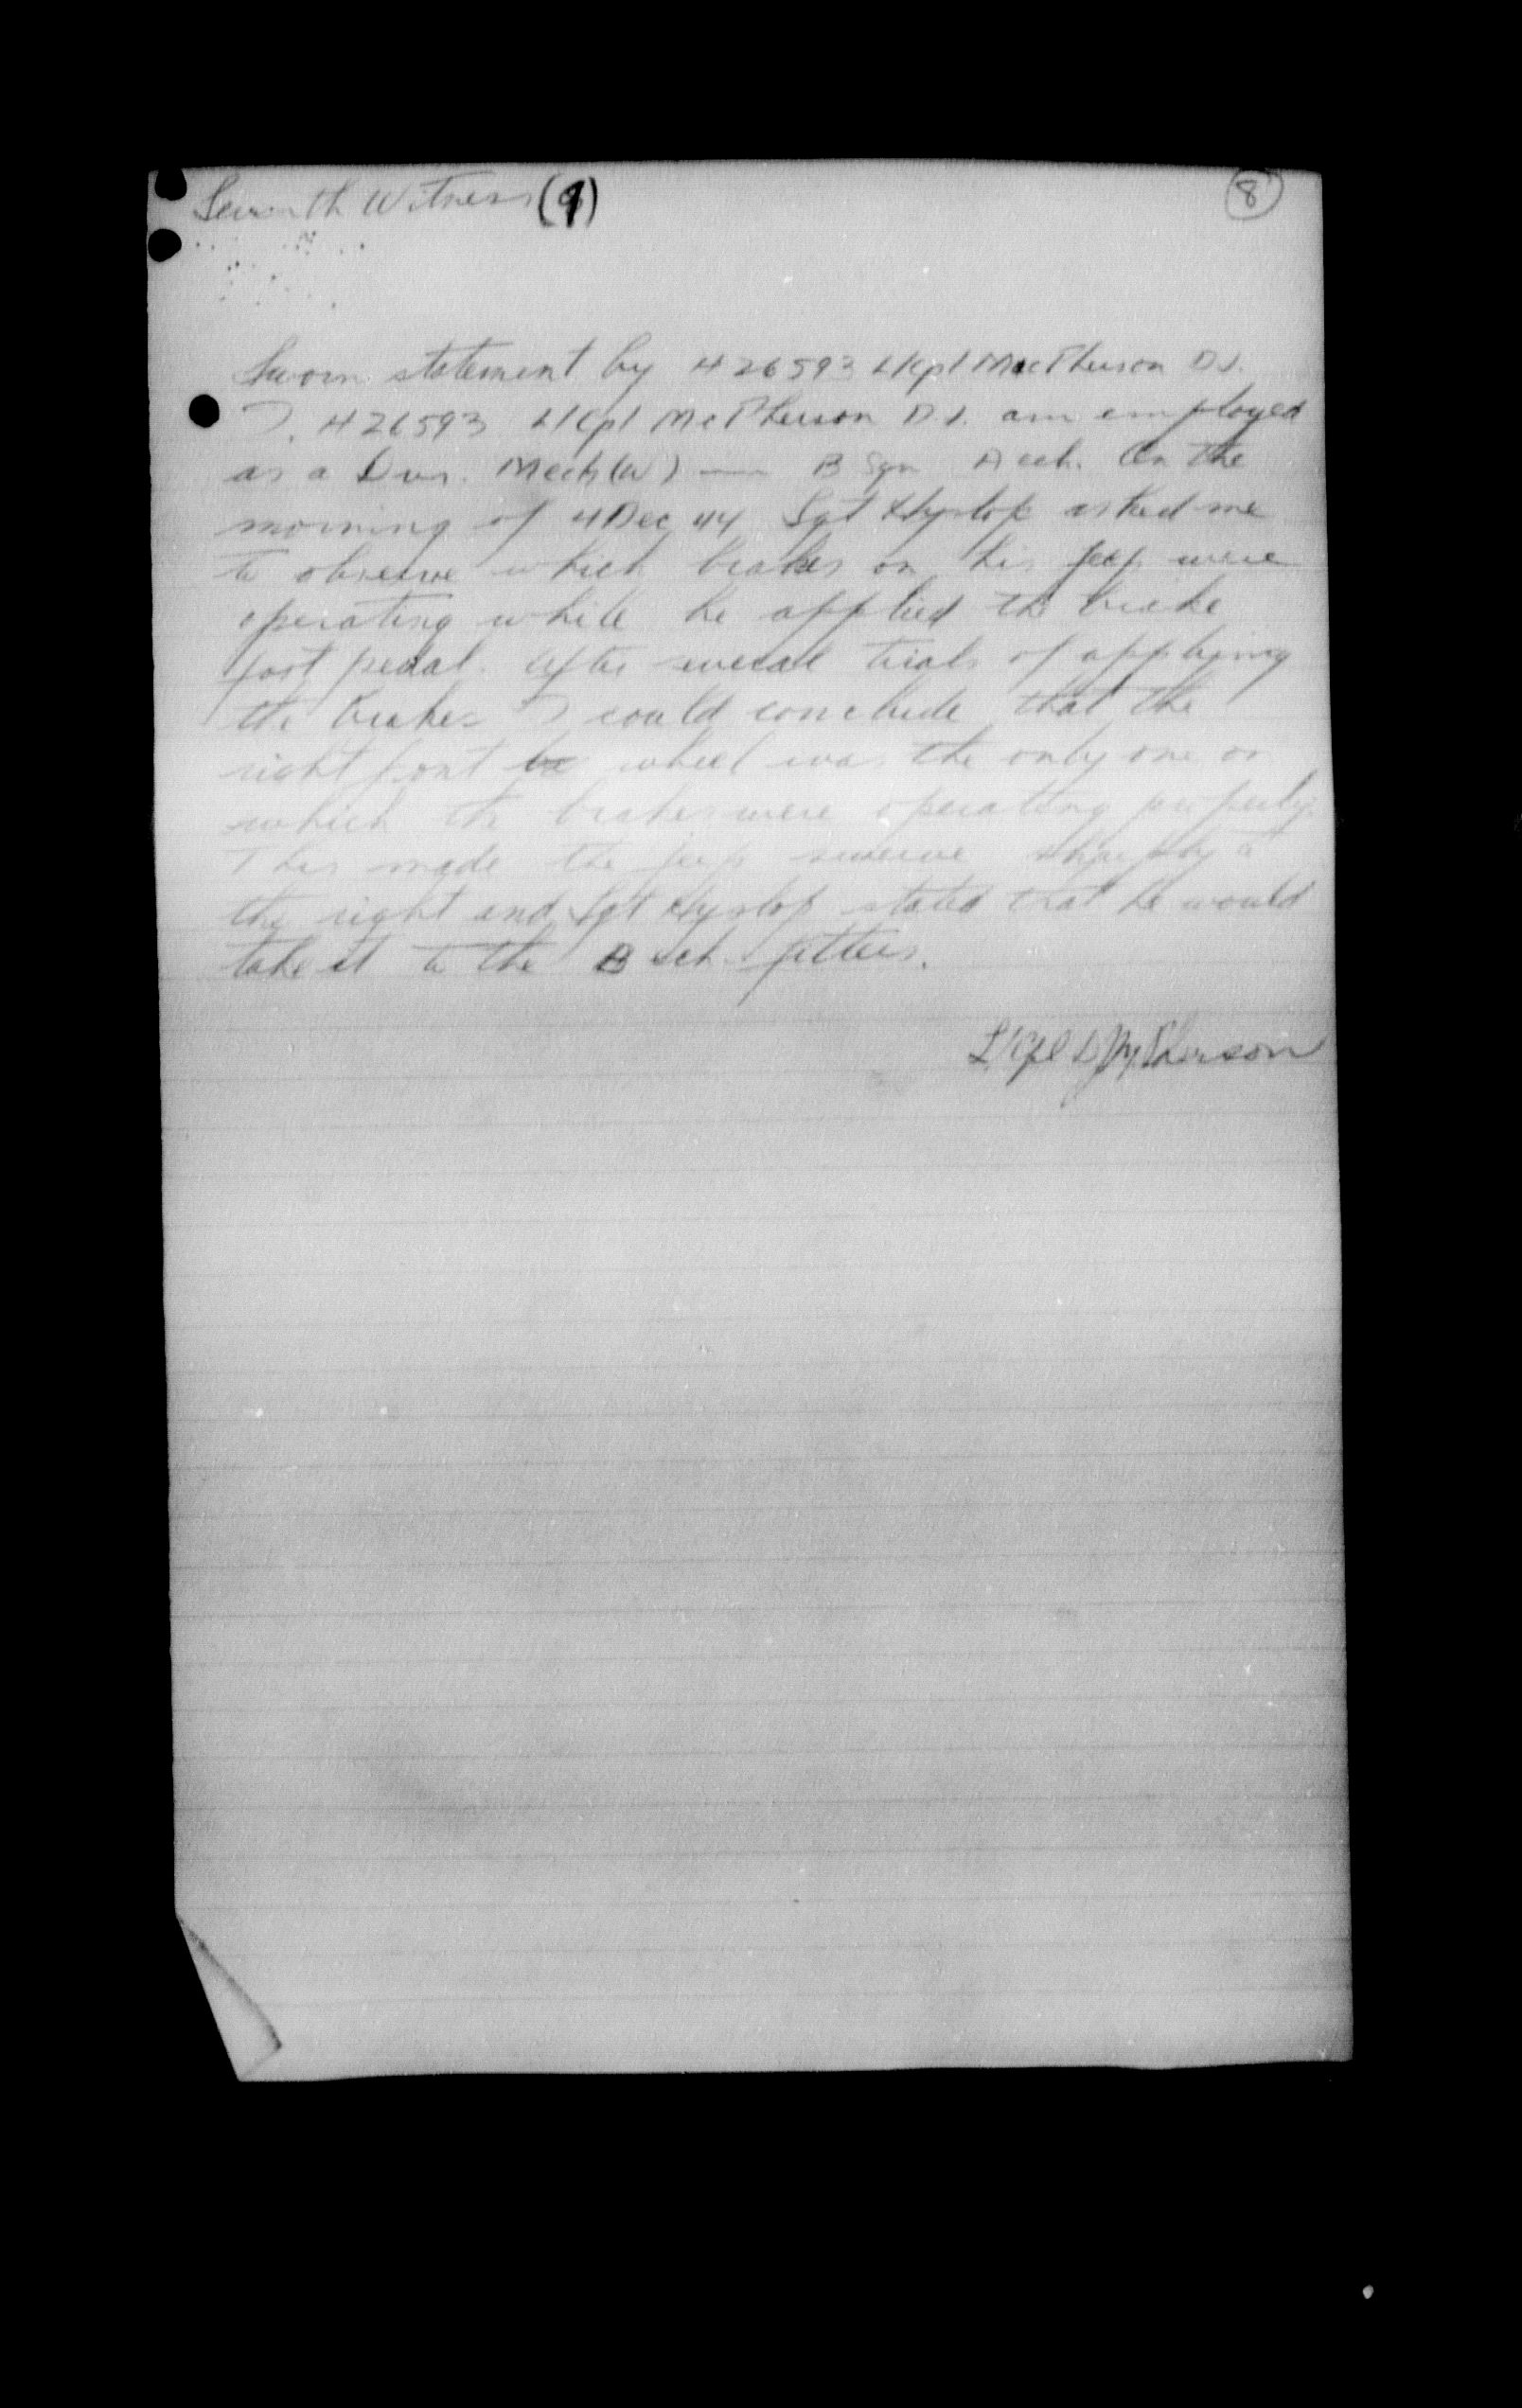 Seventh Witness (9)
8
Sworn statement by H 26593 L/Cpl MacPherson D.J.
I, H 26593 L/Cpl McPherson D.J. am employed
as a Dvr. Mech (W) — B Sqn A ech. On the
morning of 4 Dec 44 Sgt Hyslop asked me
to observe which brakes on his jeep were
operating while he applied the brake
foot pedal. After several trials of applying
the brakes I could conclude that the
right front wheel was the only one on
which the brakes were operating properly.
This made the jeep swerve sharply to
the right and Sgt Hyslop stated that he would
take it to the B ech fitters.
L/Cpl D McPherson